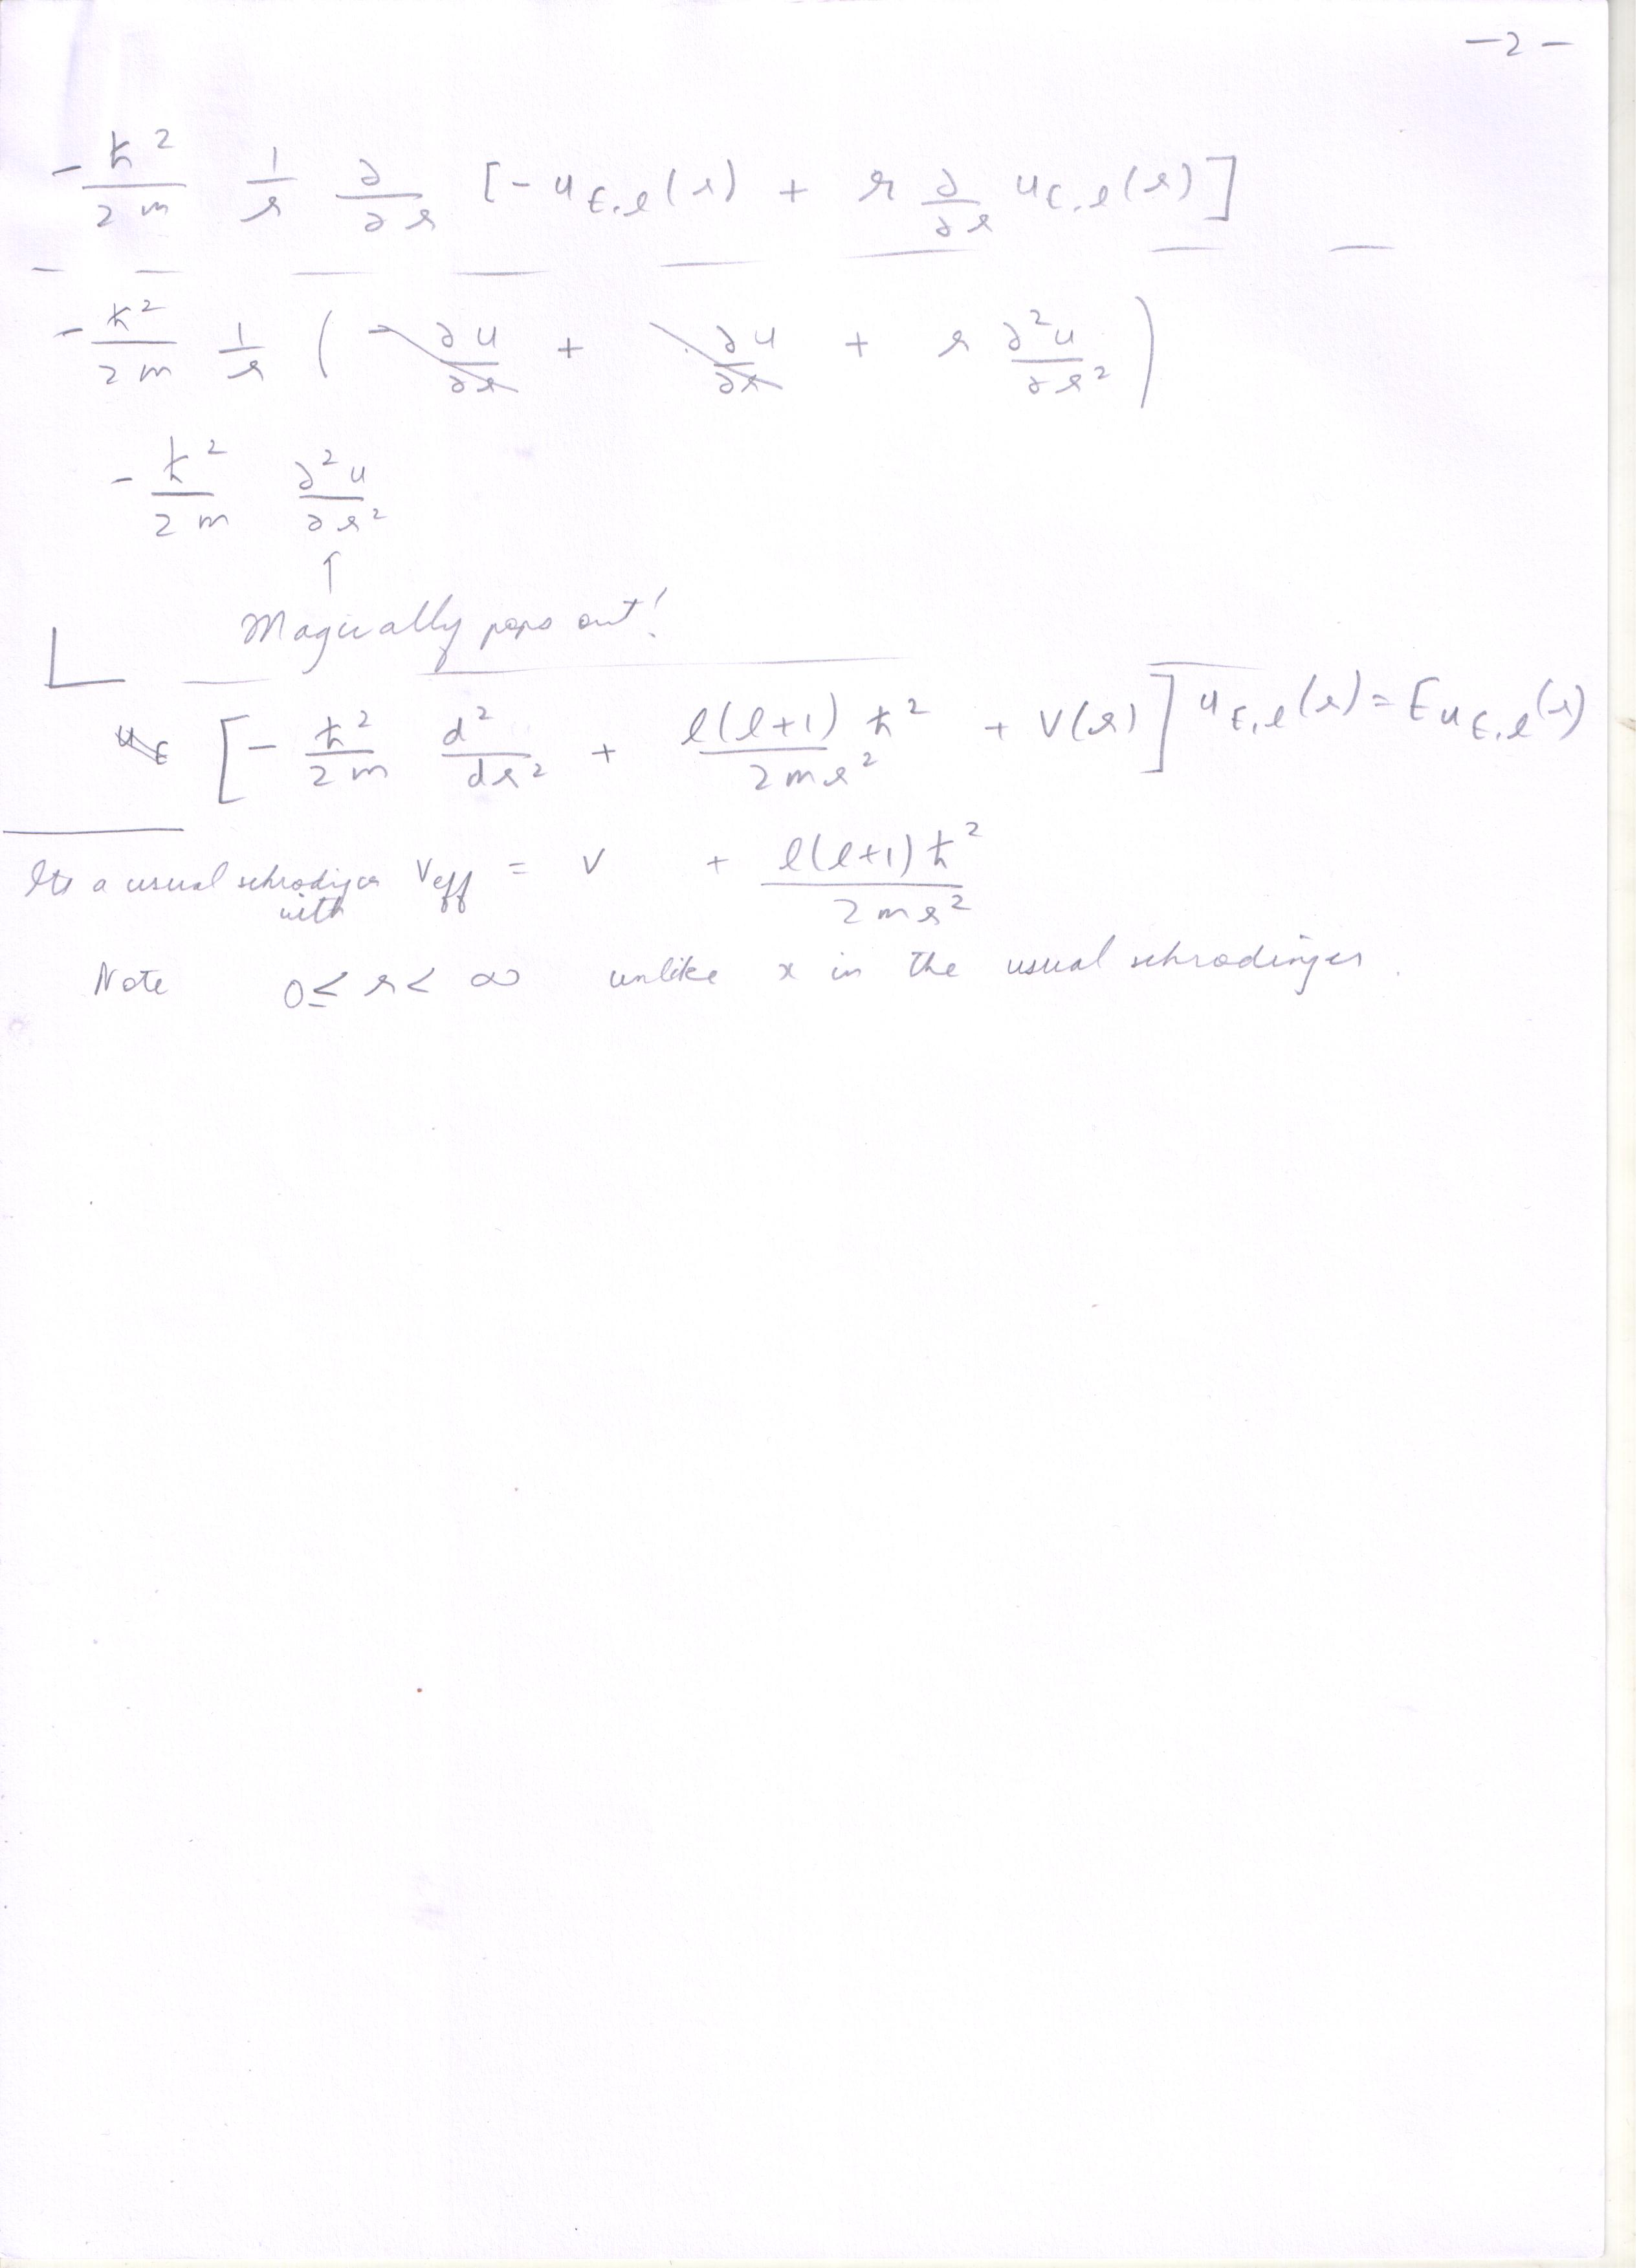 -2-
-ħ²/2m 1/r ∂/∂r [-u_{E,l}(r) + r ∂/∂r u_{E,l}(r)]
-ħ²/2m 1/r (-∂u/∂r + ∂u/∂r + r ∂²u/∂r²)
-ħ²/2m ∂²u/∂r²
↑
Magically pops out!
[-ħ²/2m d²/dr² + l(l+1)ħ²/2mr² + V(r)] u_{E,l}(r) = E u_{E,l}(r)
Its a usual schrodiger with V_eff = V + l(l+1)ħ²/2mr²
Note 0≤ r < ∞ unlike x in the usual schrodinger.